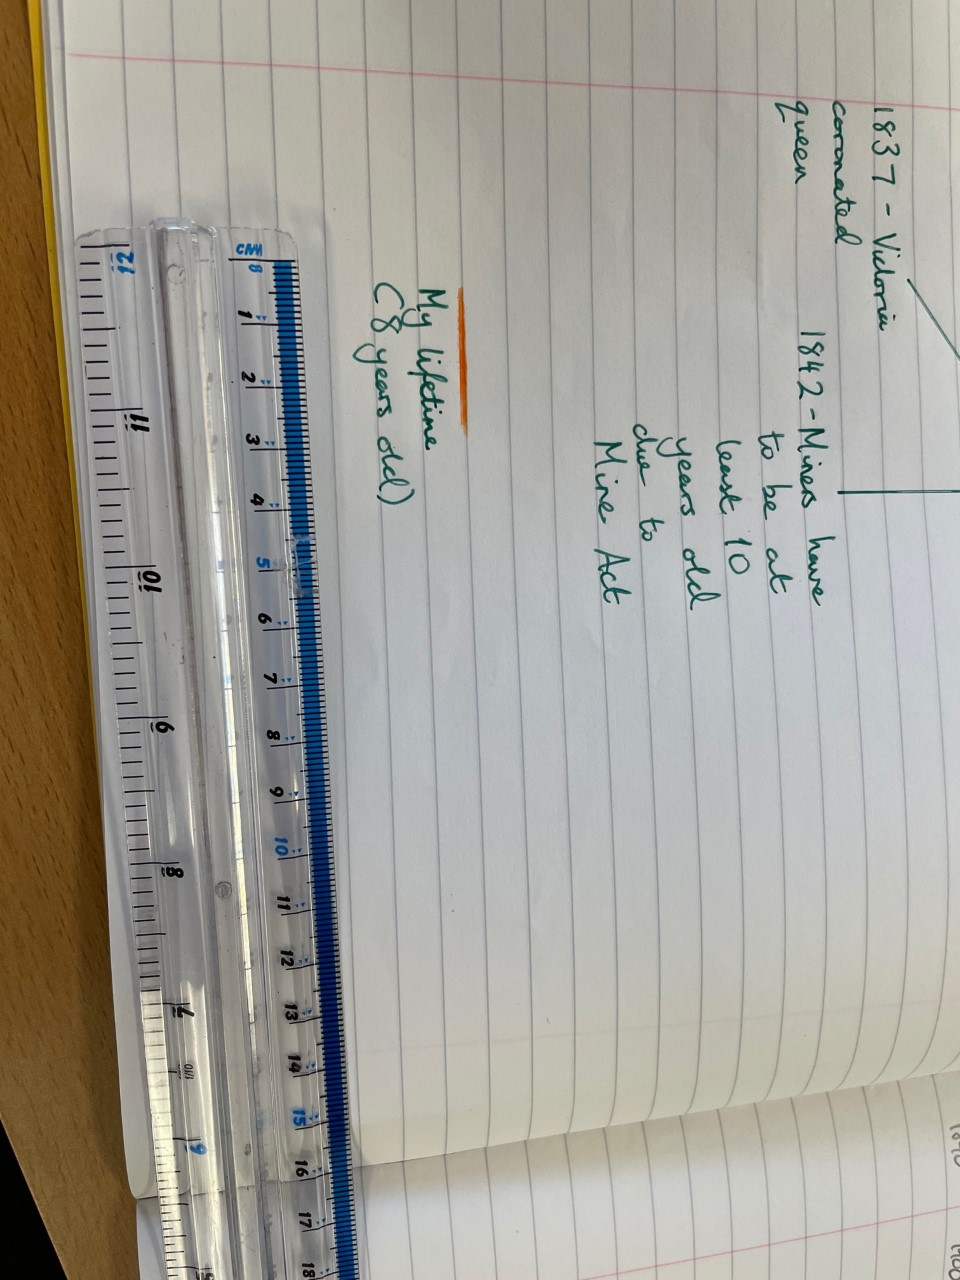 1837 - Victoria
coronated
queen
1842 - Miners have
to be at
least 10
years old
due to
Mine Act
My lifetime
(8 years old)
CM
0 1 2 3 4 5 6 7 8 9 10 11 12 13 14 15 16 17 18
12 11 10 9 8 7 6